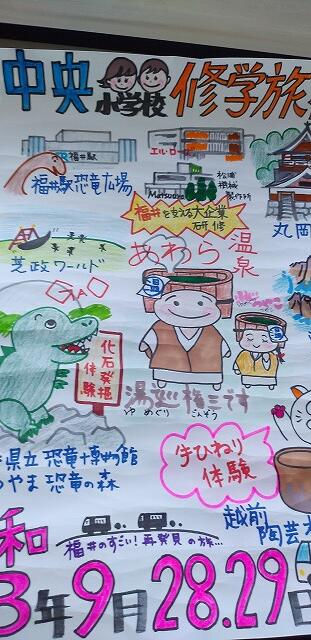 中央小学校 修学旅
JR 福井駅
エル・ロー
福井駅恐竜広場
Matsuura
松浦
機械
製作所
福井を支える大企業
研修
丸岡
芝政ワールド
あわら温泉
GAO
化石発掘
体験
湯巡権三です
ゆめぐり ごんぞう
県立恐竜博物館
やま恐竜の森
手ひねり
体験
越前
陶芸
福井のすごい!再発見の旅…
和
3年9月28.29日